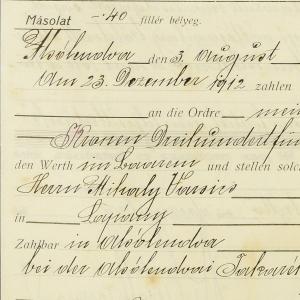 Másolat -.40 fillér bélyeg.
Alsólendva den 3. August
Am 23. Dezember 1912 zahlen
an die Ordre mein
Kronen Dreihundertfün
den Werth im Baarem und stellen solc
Herrn Mihaly
in
Zahlbar in Alsólendva
bei der Alsólendvai Takaré